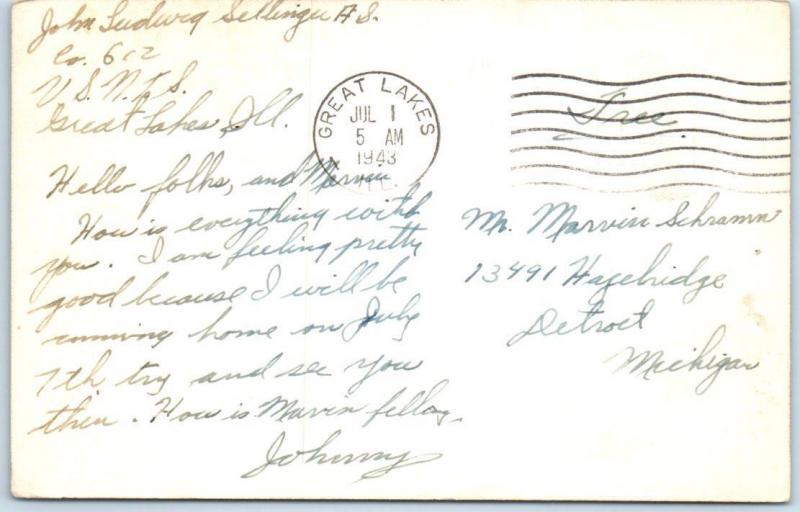 John Ludwig Sellinger A.S.
Co. 612
U.S.N.T.S.
Great Lakes, Ill.
GREAT LAKES
JUL 1
5 AM
1943
ILL.
Free.
Hello folks, and Marvin
How is everything with
you. I am feeling pretty
good because I will be
comming home on July
7th try and see you
then. How is Marvin
Johnny
Mr. Marvin Schramm
13491 Hazelridge
Detroit
Michigan